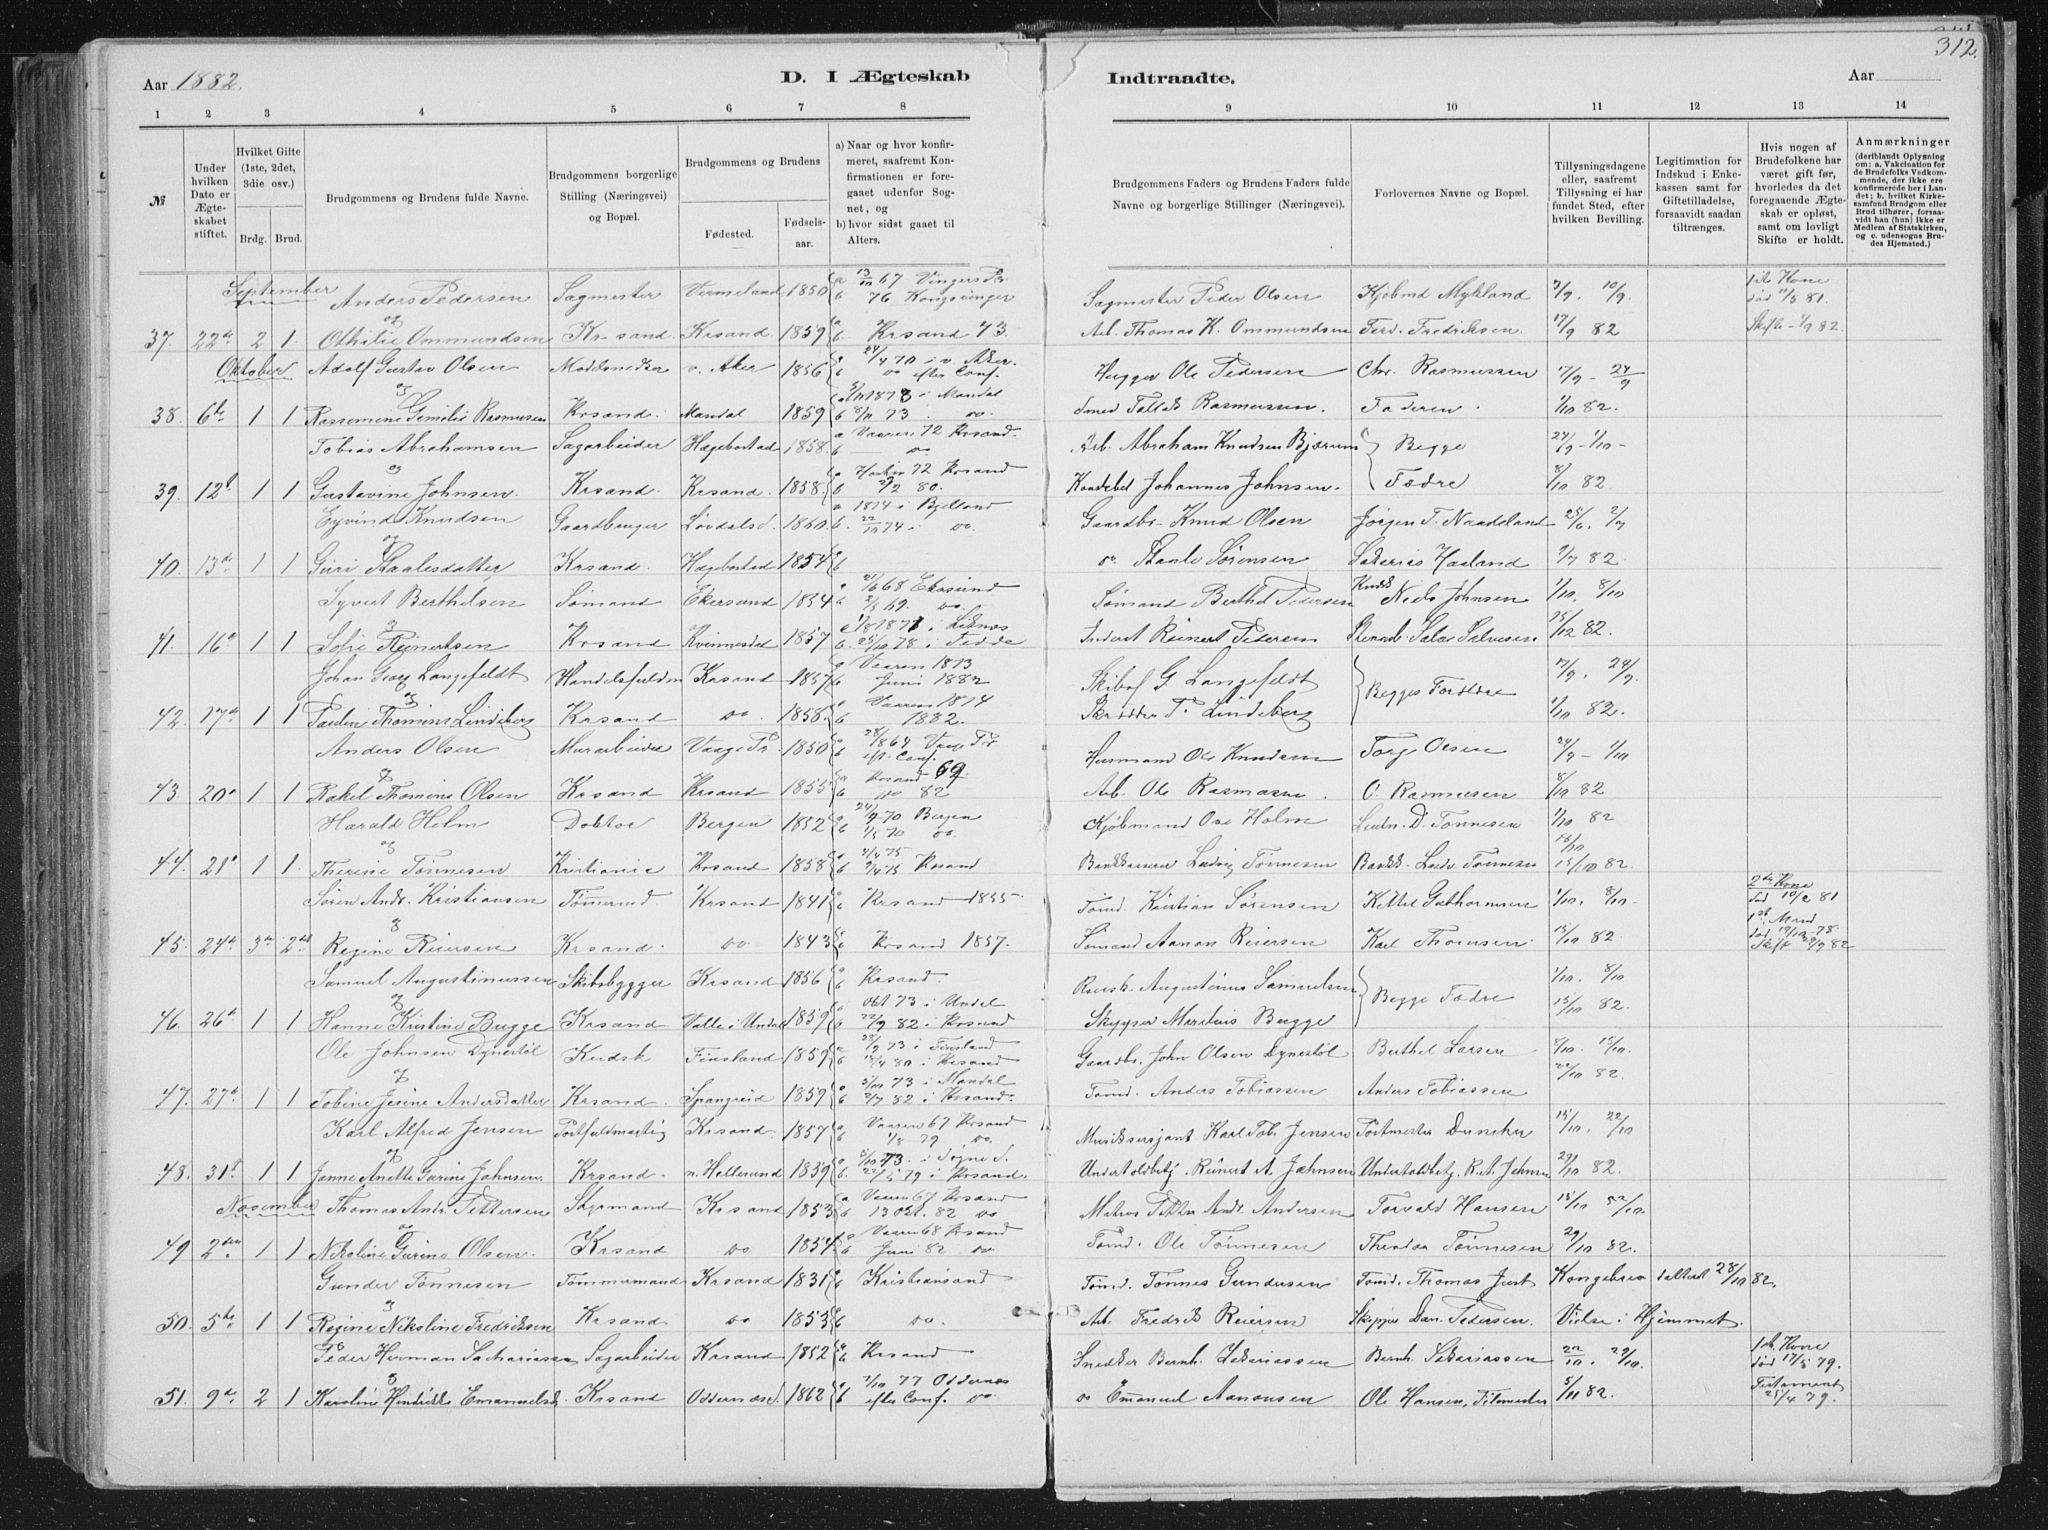 312.
Aar 1882. D. I Ægteskab Indtraadte. Aar
1 2 3 4 5 6 7 8 9 10 11 12 13 14
№
Under hvilken Dato er Ægteskabet stiftet.
Hvilket Gifte (1ste, 2det, 3die osv.)
Brdg. Brud.
Brudgommens og Brudens fulde Navne.
Brudgommens borgerlige Stilling (Næringsvei) og Bopæl.
Brudgommens og Brudens
Fødested. Fødselsaar.
a) Naar og hvor konfirmeret, saafremt Konfirmationen er foregaaet udenfor Sognet, og
b) hvor sidst gaaet til Alters.
Brudgommens Faders og Brudens Faders fulde Navne og borgerlige Stillinger (Næringsvei).
Forlovernes Navne og Bopæl.
Tillysningsdagene eller, saafremt Tillysning ei har fundet Sted, efter hvilken Bevilling.
Legitimation for Indskud i Enkekassen samt for Giftetilladelse, forsaavidt saadan tiltrænges.
Hvis nogen af Brudefolkene har været gift før, hvorledes da det foregaaende Ægteskab er opløst, samt om lovligt Skifte er holdt.
Anmærkninger (deriblandt Oplysning om: a. Vakcination for de Brudefolks Vedkommende, der ikke ere konfirmerede her i Landet; b. hvilket Kirkesamfund Brudgom eller Brud tilhører, forsaavidt han (hun) ikke er Medlem af Statskirken, og c. udensogns Brudes Hjemsted.)
September
Anders Pedersen Sagmester Vermeland 1850 a 13/10 67 Vingers Pr. b 76 Kongsvinger Sagmester Peder Olsen Kjøbmd Mykland 3/9. 10/9. 1ste Kone død 11/8 81.
37. 22de 2 1 Othilie Ommundsen Kr-sand Krsand 1859 b Krsand 73. Arb. Thomas K. Ommundsen Ferd. Fredriksen. 17/9 82 Skifte 1/9 82.
Oktober Adolf Gustav Olsen v. Aker 1856 24/4 70 i v. Aker. efter Conf. Ole Pedersen Chr. Rasmussen 17/9 - 24/9
38. 6te 1 1 Rasmussen Krsand. Mandal 1859 i Mandal 8/11 73. do. Smed Rasmussen. Faderen. 1/10 82.
Tobias Abrahamsen Sagarbeider Hægebostad 1858. a Vaaren 72 Krsand. b do Arb. Abraham Knudsen Bjærum Begge 24/9 - 1/10 -
39. 12te 1 1 Gustavine Johnsen. Krsand. Krsand. 1858. a Høsten 72 Krsand 80. Johannes Johnsen. Fædre 8/10 82.
Eyvind Knudsen Gaardbruger 1850. a 1874 i Bjelland b. 22/10 74 - do. Gaardbr. Knud Olsen Jørgen T. Naadeland 25/6. 2/7
40. 13de 1 1 Guri Staalesdatter Krsand. Hægebostad 1854 do. Staale Sørensen Haaland 9/7 82.
Syvert Berthelsen Sømand Ekersund 1854 68 Ekersund 69. do. Sømand Berthel Pedersen Niels Johnsen 1/10. 8/10
41. 16de 1 1 Sofie Reinertsen Krsand Kvinnesdal 1857 1871 i Liknes b. 25/10 78 i Fedde Reinert Pedersen Salve Salvesen 15/10 82.
Johan Georg Langefeldt Krsand 1857 a Vaaren 1873 b Juni 1882 Skibsf G Langefeldt Begges Forældre 17/9. 24/9.
42. 17de 1 1 Thomine Lindeberg Krsand do. 1858. a Vaaren 1874 b 1882. Skrædder T. Lindeberg 1/10 82.
Anders Olsen Murarbeider Vaage Pr. 1850 1864 Vaage Pr eft. Conf. Husmand Ole Knudsen Torge Olsen 24/9 - 1/10
43 20de 1 1 Rakel Thomine Olsen Krsand Krsand 1855 a Krsand 69. b do 82 Arb. Ole Rasmussen. O. Rasmussen 8/10 82
Harald Holm Doktor Bergen 1852 70 Bergen 1/5 70 do. Kjøbmand Holm D. Tønnesen 1/10 82
44. 21de 1 1 Therese Tønnesen Kristiania Krsand 1858 4/4 75 Krsand Ludvig Tønnesen Tønnesen 15/10 82.
Søren Andr. Kristiansen Tømmermd Krsand 1841 a Krsand 1855. Tømd. Kristian Sørensen Kittel Guthormsen 1/10. 8/10. 2den Kone død 10/2 81
45. 24de 3die 2det Regine Reiersen Krsand. do 1843 Krsand 1857. Sømand Aanon Reiersen Karl Thomsen. 15/10 82. 1ste Mand død 78 Skifte 82
Samuel Augustinussen Skibsbygger Krsand 1856 a Krsand. Augustinus Samuelsen Begge Fædre 1/10. 8/10
46. 26de 1 1 Hanne Kristine Bugge Krsand. Valle i Undal 1859 Okt 73 i Undal 22/9 82 i Krsand Skipper Bugge 15/10 82.
Ole Johnsen Dynestøl Kudsk Finsland 1859 73 i Finsland 80 i Krsand Gaardbr. John Olsen Dynestøl Berthel Larsen 8/10. 15/10.
47. 27de 1 1 Tobine Jesine Andersdatter Krsand. Spangreid 1859 5/10 73 i Mandal 2/7 82 i Krsand. Tømd. Anders Tobiassen Anders Tobiassen 22/10 82.
Karl Alfred Jensen Krsand. 1857 a Vaaren 67 Krsand 1/8 79 do. Musiksersjant Karl Tob. Jensen Duncker 15/10. 22/10
48. 31te 1 1 Janne Anette Gurine Johnsen. Krsand. n. Hellesund 1859 5/10 73. i Søgne S. 79 i Krsand. Undertoldbetj. Reinert A. Johnsen Undertoldbetj. R. A. Johnsen 29/10 82.
November Thomas Andr. Pettersen Sagsmand Krsand 1853 a Vaaren 67 Krsand b 13 Okt. 82 do Petter Andr. Andersen Torvald Hansen 15/10 22/10.
49 2den 1 1 Nikoline Gurine Olsen. Krsand do. 1854 a Vaaren 68 Krsand b Juni 82 do. Tømd. Ole Tønnesen Theodor Tønnesen 29/10 82.
Gunder Tønnesen Tømmermand Krsand 1831 Kristiansand Tømd. Tønnes Gundersen Tømd. Thomas Just Kongebrev dattert 28/10 82.
50. 5te 1 1 Regine Nikoline Fredriksen Krsand do 1853 do. Arb. Fredrik Reiersen Skipper Dan. Pedersen. Vielse i Hjemmet.
Peder Herman Sachariasen Sagarbeider Krsand 1852 Krsand Snedker Bernh. Zakariassen Bernh. Sakariassen 22/10. 29/10. 1ste Kone død 17/5 79.
51. 9de 2 1 Karoline Hendrikke Emanuelsd. Krsand Oddernæs. 1862 a 7/10 77 Oddernes b efter Conf. do. do Emanuel Aanonsen Ole Hansen, 5/11 82. Testament 25/4 79.